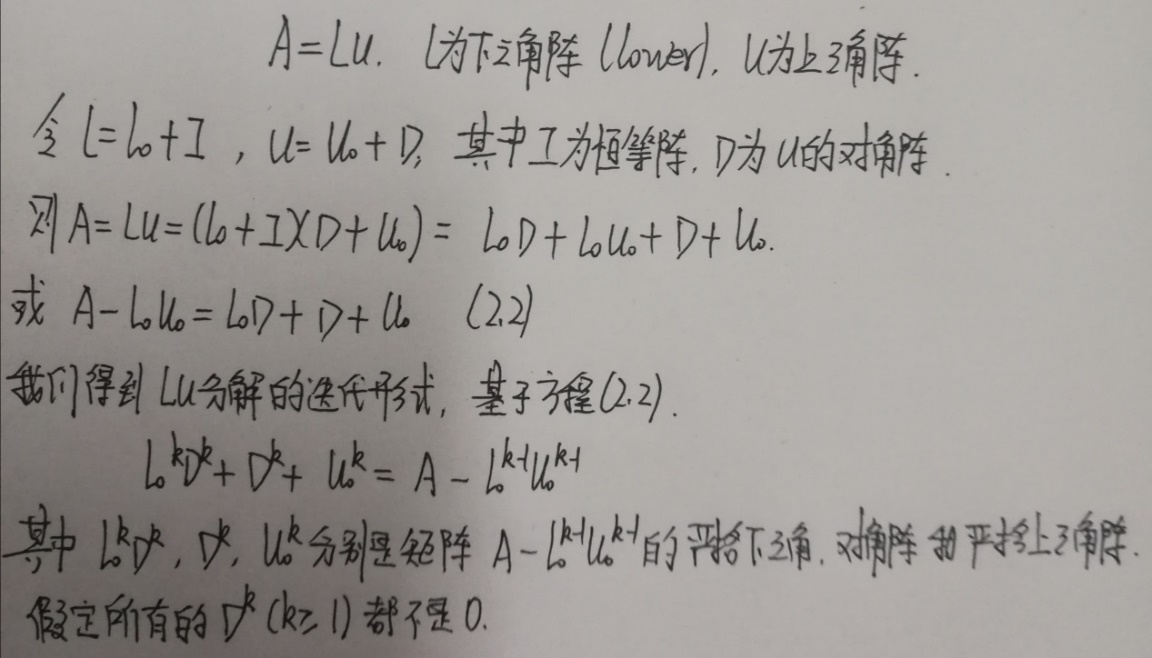 A=LU. L为下三角阵 (lower), U为上三角阵.
令 L=L₀+I, U=U₀+D, 其中I为恒等阵, D为U的对角阵.
则 A=LU=(L₀+I)(D+U₀)= L₀D+L₀U₀+D+U₀.
或 A-L₀U₀=L₀D+D+U₀ (2.2)
我们得到LU分解的迭代形式, 基于方程(2.2).
L₀ᵏDᵏ+Dᵏ+U₀ᵏ=A-L₀ᵏ⁻¹U₀ᵏ⁻¹
其中 L₀ᵏDᵏ, Dᵏ, U₀ᵏ分别是矩阵 A-L₀ᵏ⁻¹U₀ᵏ⁻¹的严格下三角, 对角阵和严格上三角阵.
假定所有的Dᵏ(k≥1)都不是0.